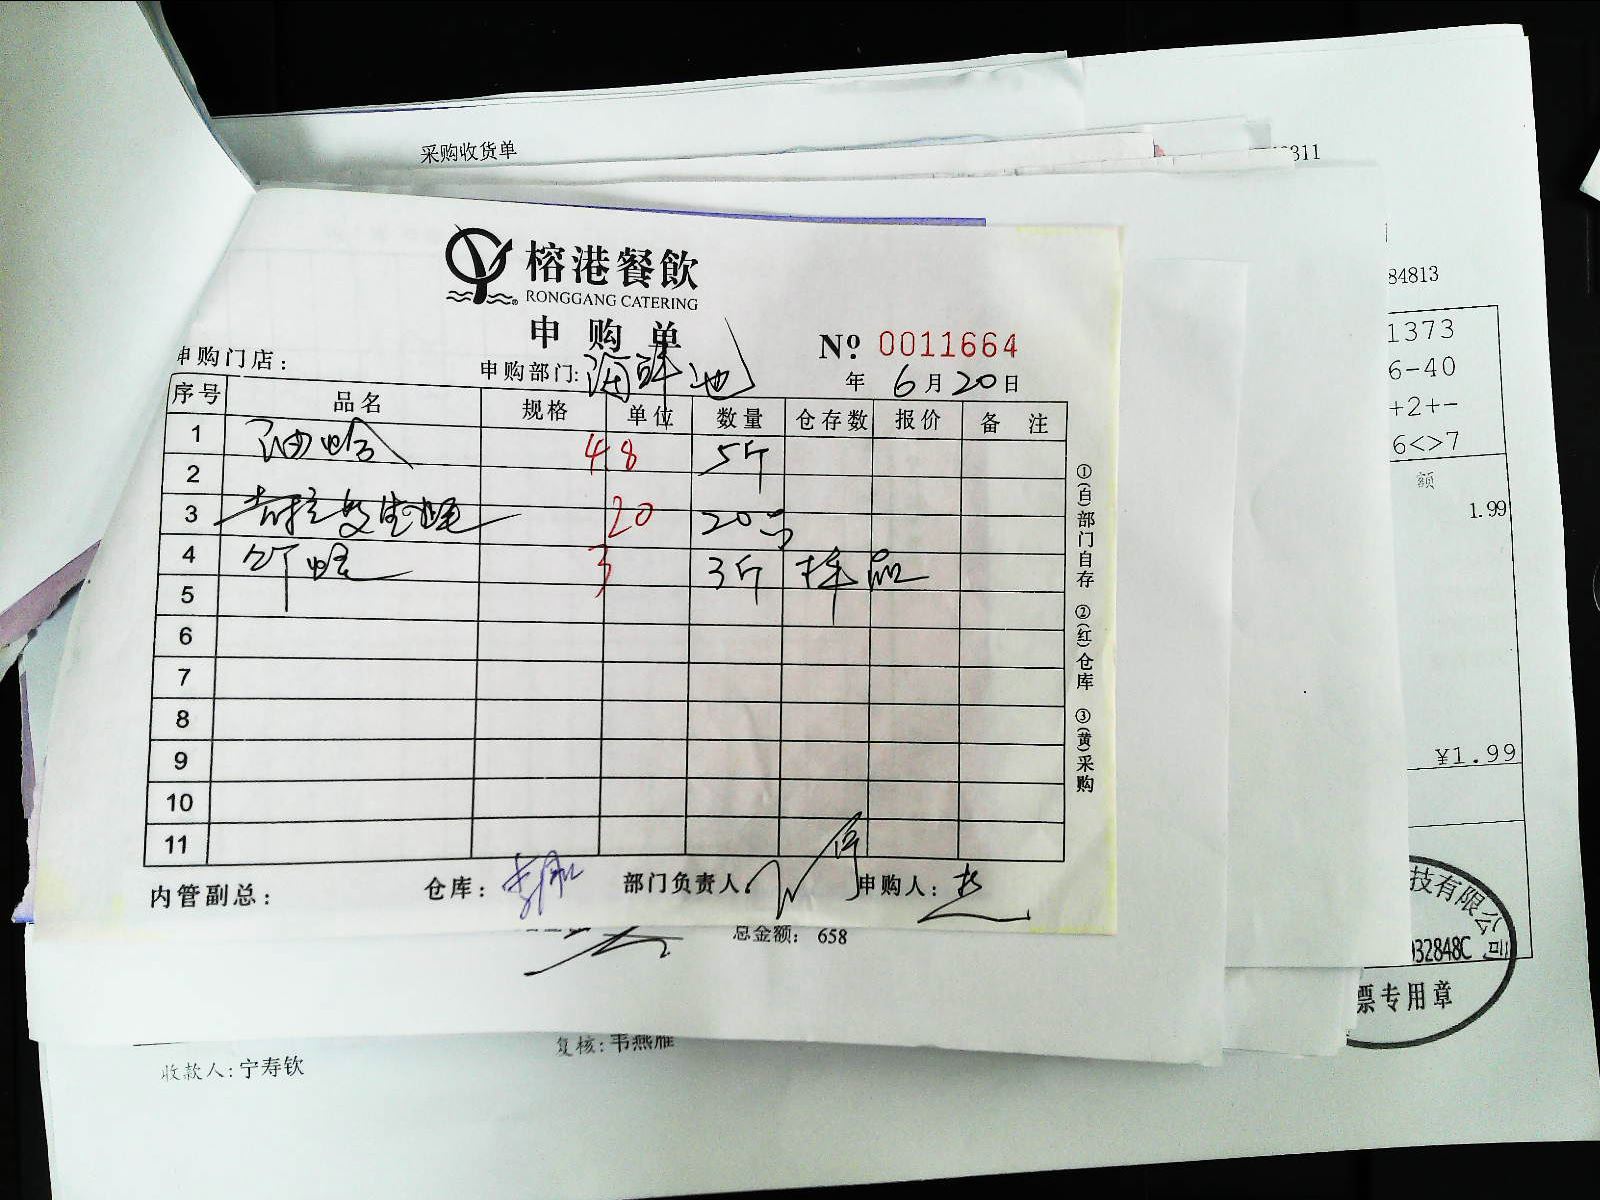 采购收货单
榕港餐飲
RONGGANG CATERING
申购单
Nº 0011664
申购门店：
申购部门: 海鲜池
年 6月20日
序号 品名 规格 单位 数量 仓存数 报价 备 注
1 油蛤 48 5斤
2
3 吉拉多生蚝 20 20只
4 竹蛏 3 3斤 样品
5
6
7
8
9
10
11
①(白)部门自存 ②(红)仓库 ③(黄)采购
内管副总： 仓库： 部门负责人 申购人：
总金额： 658
复核: 韦燕雁
收款人: 宁寿钦
84813
1373
6-40
+2+-
6<>7
额
1.99
¥1.99
技有限公司
32848C
票专用章